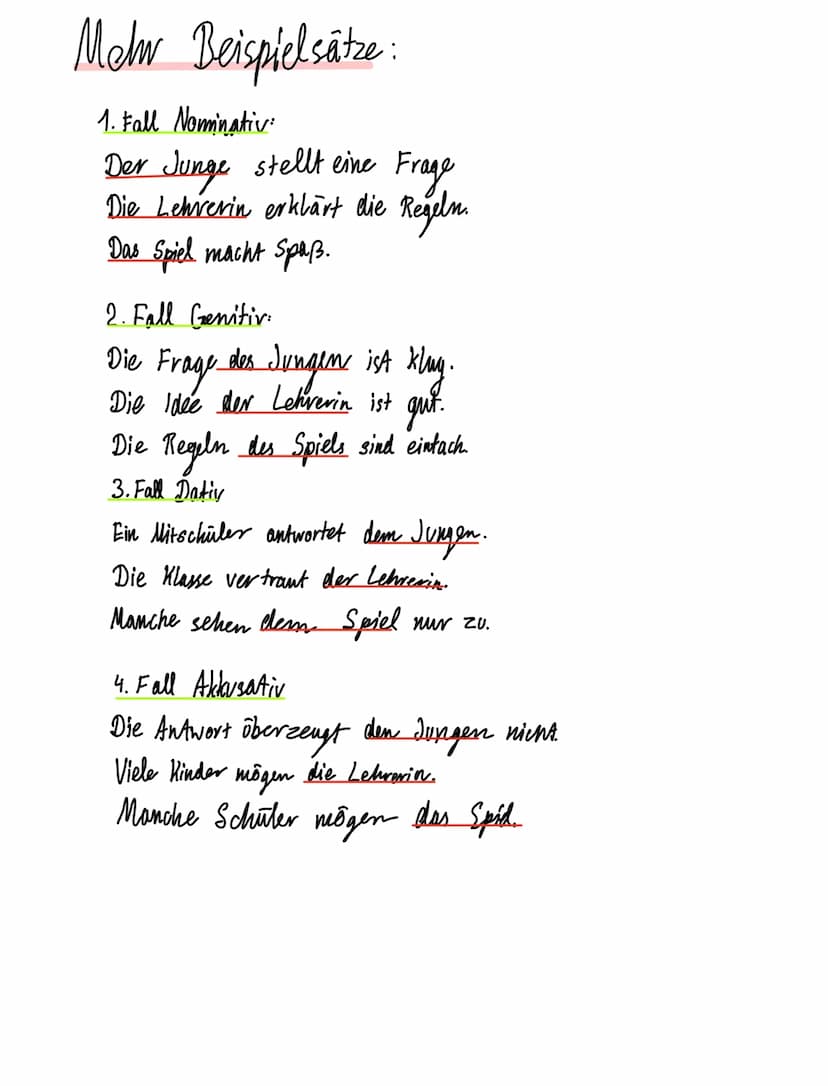 Mehr Beispielsätze:
1. Fall Nominativ:
Der Junge stellt eine Frage
Die Lehrerin erklärt die Regeln.
Das Spiel macht Spaß.
2. Fall Genitiv:
Die Frage des Jungen ist klug.
Die Idee der Lehrerin ist gut.
Die Regeln des Spiels sind einfach.
3. Fall Dativ
Ein Mitschüler antwortet dem Jungen.
Die Klasse vertraut der Lehrerin.
Manche sehen dem Spiel nur zu.
4. Fall Akkusativ
Die Antwort überzeugt den Jungen nicht.
Viele Kinder mögen die Lehrerin.
Manche Schüler mögen das Spiel.